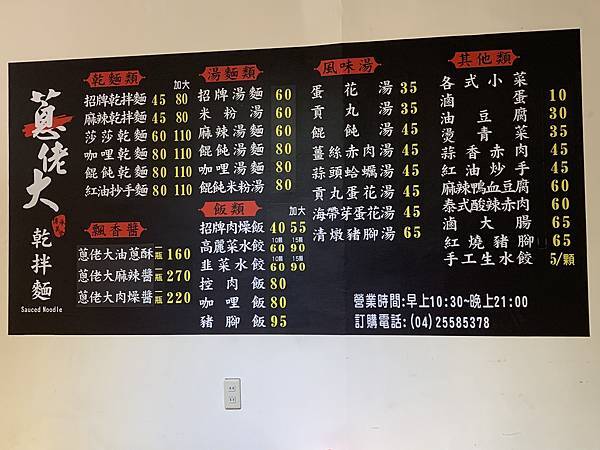 蔥佬大
乾拌麵
Sauced Noodle
乾麵類
加大
招牌乾拌麵 45 80
麻辣乾拌麵 45 80
莎莎乾麵 60 110
咖哩乾麵 80 110
餛飩乾麵 80 110
紅油抄手麵 80 110
飄香醬
蔥佬大油蔥酥 一瓶 160
蔥佬大麻辣醬 一瓶 270
蔥佬大肉燥醬 一瓶 220
湯麵類
招牌湯麵 60
米粉湯 60
麻辣湯麵 60
餛飩湯麵 80
咖哩湯麵 80
餛飩米粉湯 80
飯類
加大
招牌肉燥飯 40 55
10顆 15顆
高麗菜水餃 60 90
10顆 15顆
韭菜水餃 60 90
控肉飯 80
咖哩飯 80
豬腳飯 95
風味湯
蛋花湯 35
貢丸湯 35
餛飩湯 45
薑絲赤肉湯 45
蒜頭蛤蠣湯 45
貢丸蛋花湯 45
海帶芽蛋花湯 45
清燉豬腳湯 65
其他類
各式小菜
滷蛋 10
油豆腐 30
燙青菜 35
蒜香赤肉 45
紅油炒手 45
麻辣鴨血豆腐 60
泰式酸辣赤肉 60
滷大腸 65
紅燒豬腳 65
手工生水餃 5/顆
營業時間:早上10:30~晚上21:00
訂購電話: (04)25585378